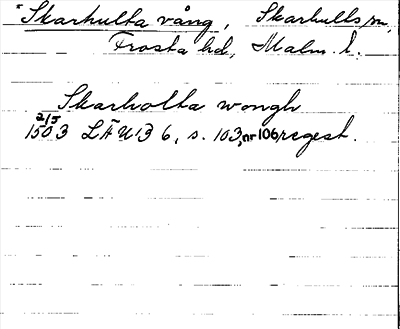 "Skarhulta vång, Skarhults sn,
Frosta hd, Malm. l.
Skarholta wongh
2/5
1503 LÄUB 6, s. 103, nr 106, regest.